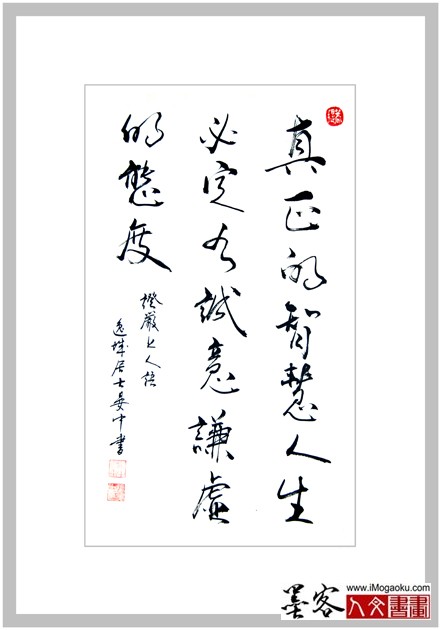 真正的智慧人生
必定有誠意謙虛
的態度
證嚴上人語
居士晏中書
墨客
www.iMogaoku.com
人文書畫